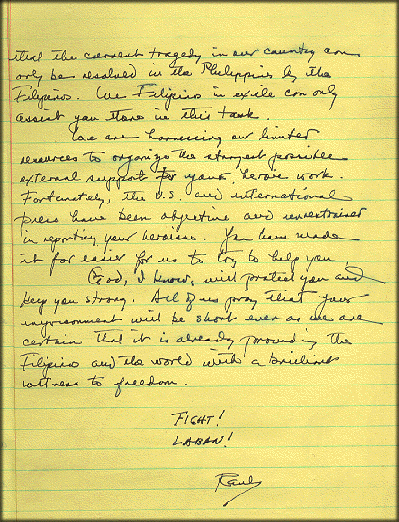 that the current tragedy in our country can
only be resolved in the Philippines by the
Filipinos. We Filipinos in exile can only
assist you there in this task.
We are harnessing our limited
resources to organize the strongest possible
external support for your heroic work.
Fortunately, the U.S. and international
press have been objective and unrestrained
in reporting your heroism. You have made
it far easier for us to try to help you.
God, I know, will protect you and
keep you strong. All of us pray that your
imprisonment will be short even as we are
certain that it is already providing the
Filipino and the world with a brilliant
witness to freedom.
FIGHT!
LABAN!
Raul